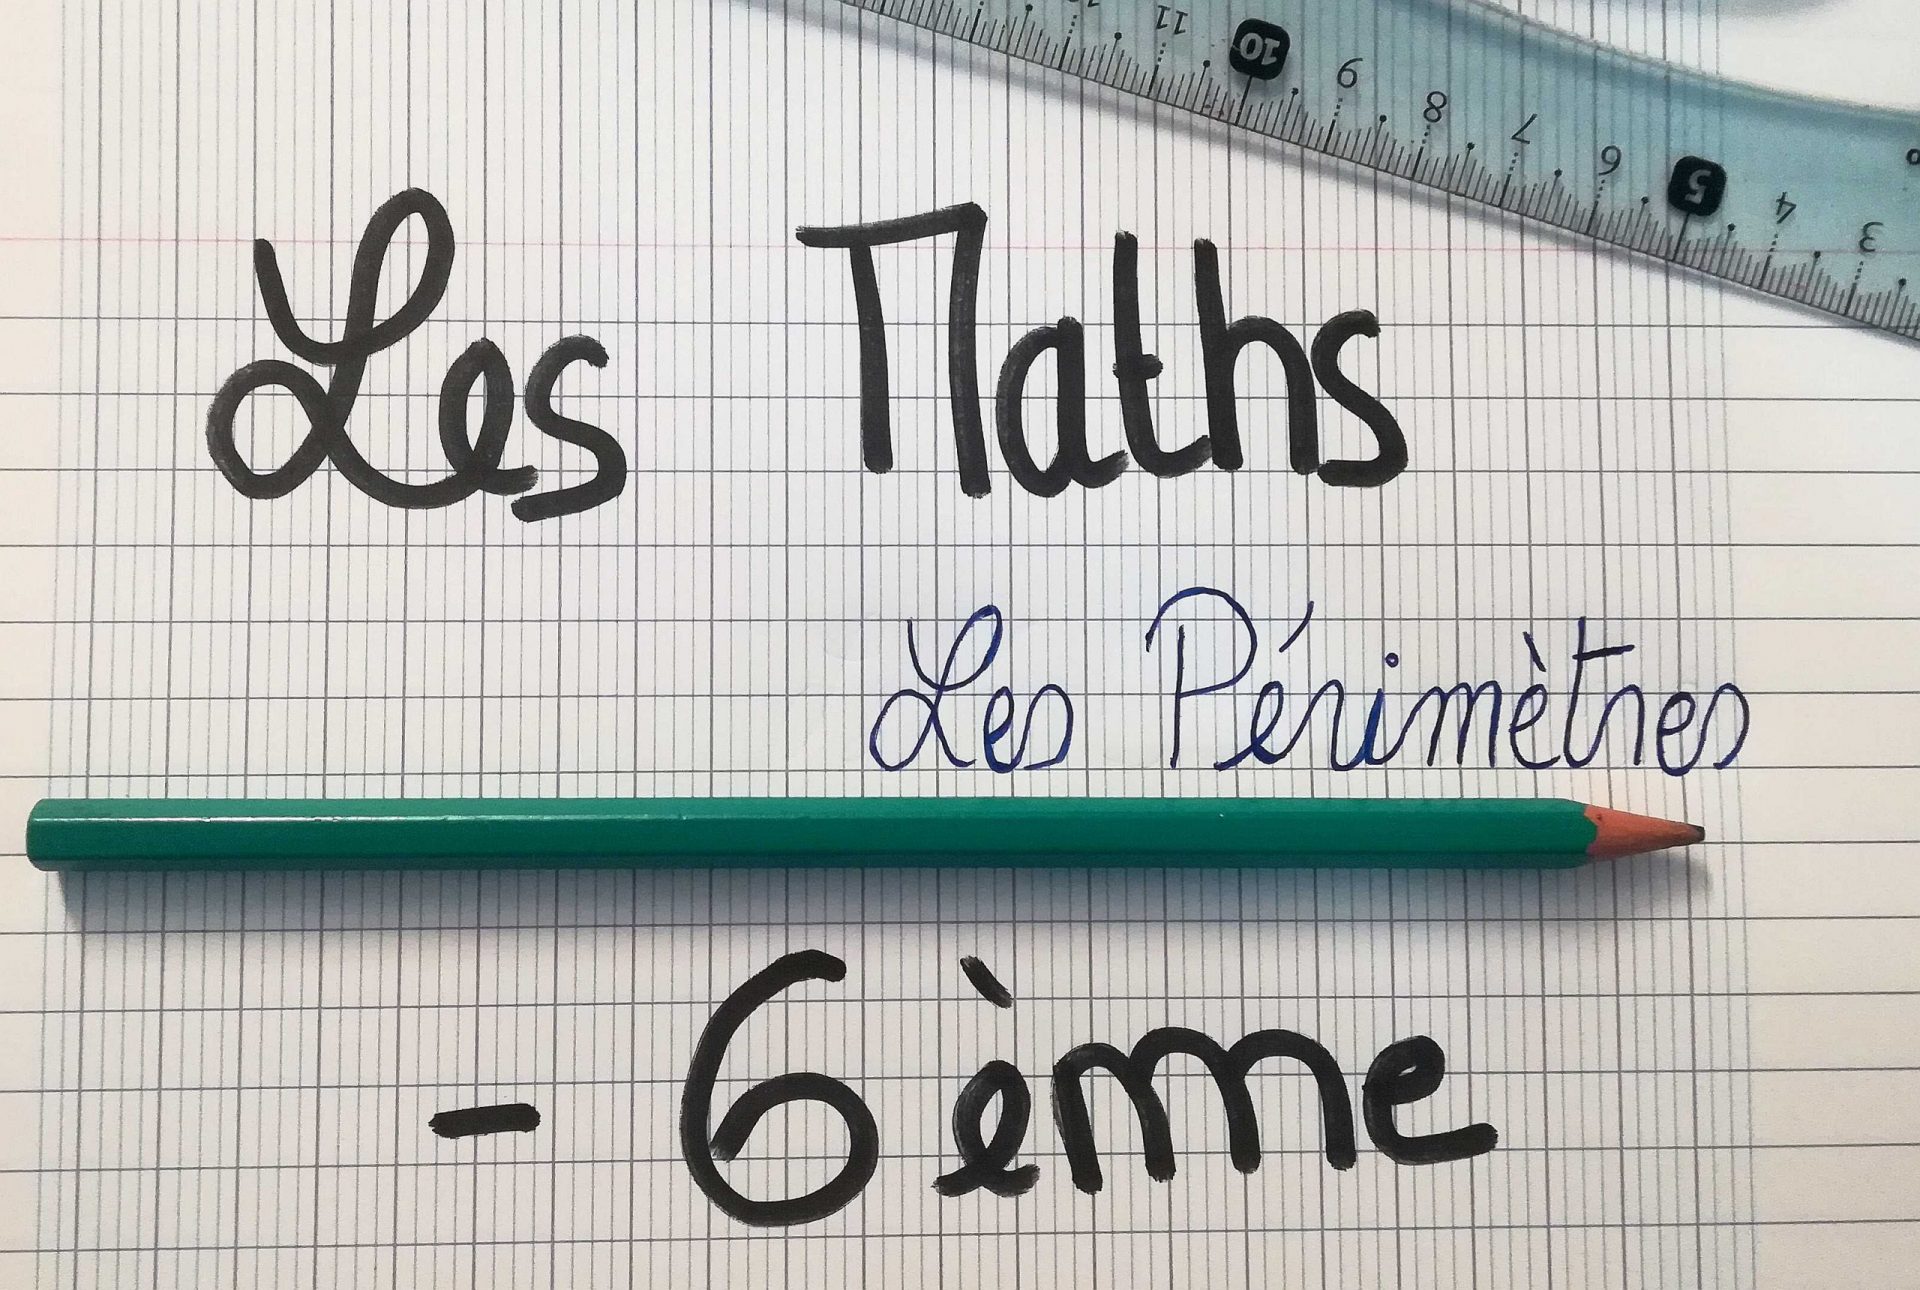 11 10 9 8 7 6 5 4 3
Les Maths
Les Périmètres
- 6ème